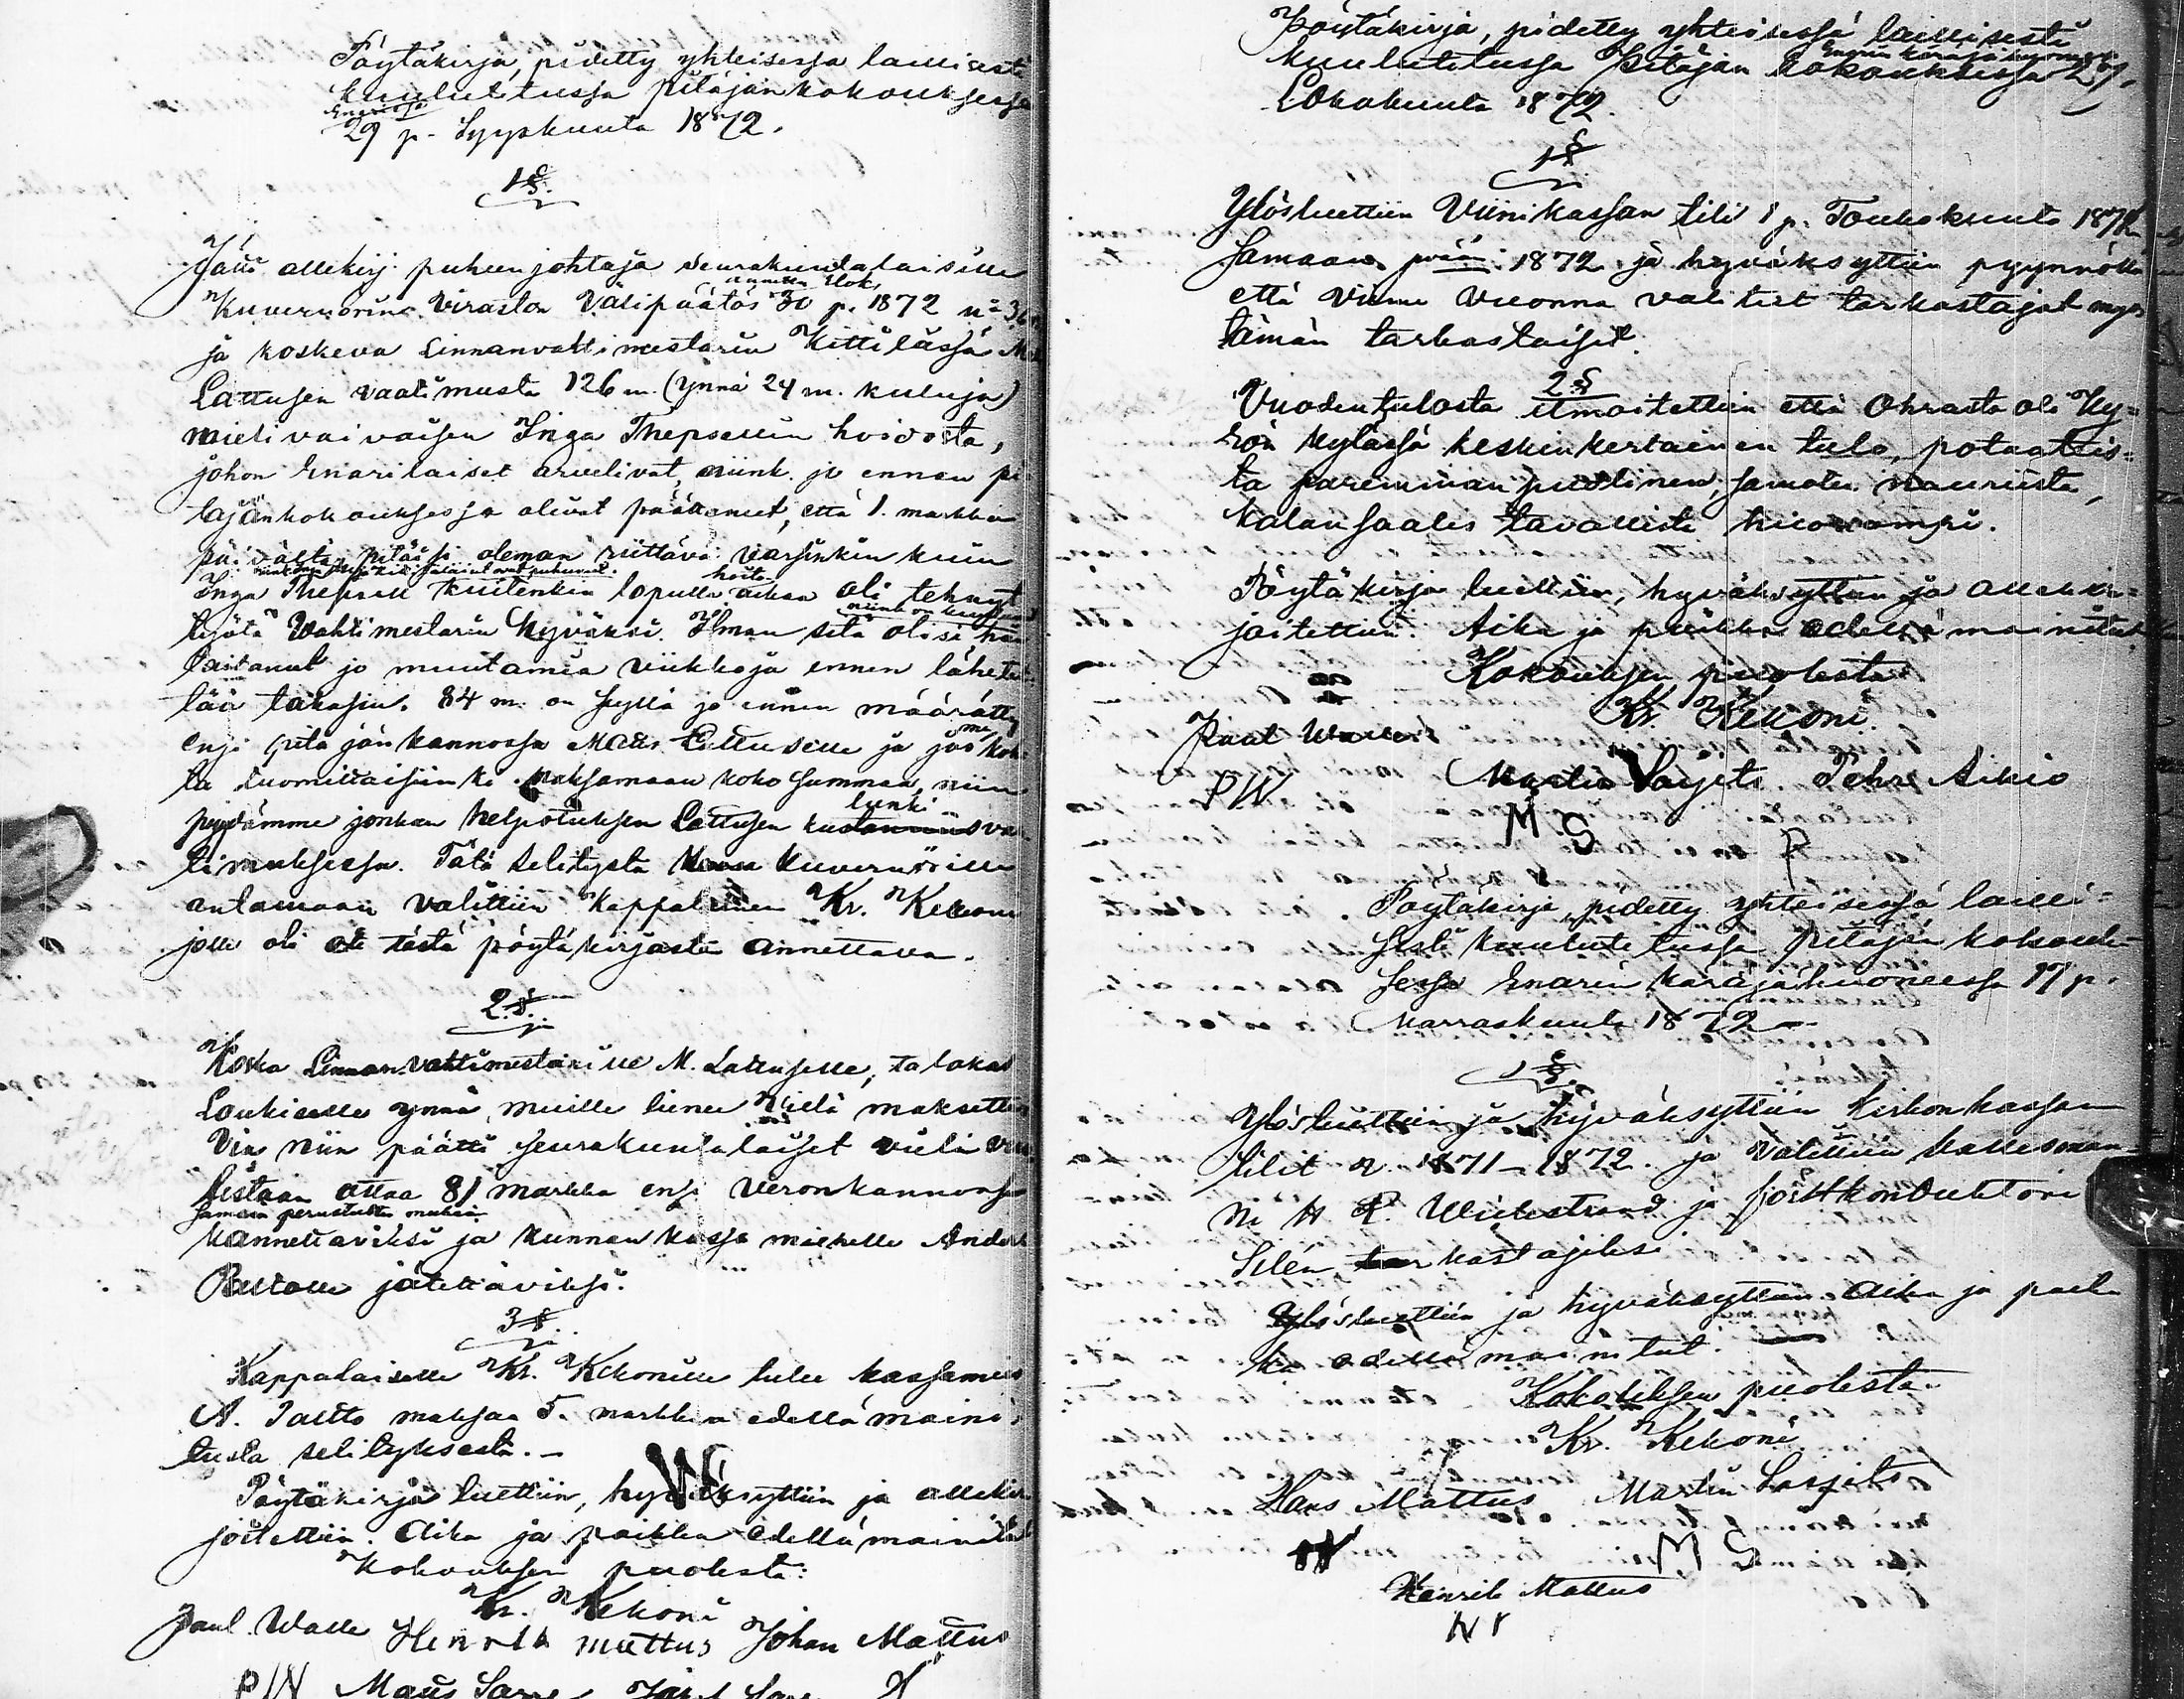 Pöytäkirja, pidetty yhteisessä laillisesti
kuulutetussa pitäjänkokouksessa
Enarissa
29 p. Syyskuuta 1872.
1 §.
Jätti allekirj. puheenjohtaja seurakuntalaisille
annettu Elok.
Kuvernörin Viraston Välipäätös 30 p. 1872 n:o
ja koskeva Linnanvahtimestarin Kittilässä
Lattusen vaatimusta 126 m. (ynnä 24 m. kuluja)
mielivaivaisen Inga Thepsellin hoidosta,
johon Enarilaiset arvelivat, niink. jo ennen pi-
täjänkokouksessa olivat päättäneet, että 1. markka
päivältä pitäisi oleman riittävä varsinkin kuin
Inga Thepsell kuitenkin lopulla hoito aikaa oli tehnyt
työtä Wahtimestarin hyväksi. Ilman sitä olisi hän
taitanut jo muutamia viikkoja ennen lähetet-
tää takasin. 84 m. on kyllä jo ennen määrätty
ensi pitäjänkannossa Matts Lattuselle ja jos me
ta tuomittaisiinki maksamaan koko summan, niin
pyydämme jonkun helpotuksen Lattusen
timuksessa. Tätä selitystä Kuvernörille
antamaan valittiin Kappalainen Kr. Kekoni
jolle oli ote tästä pöytäkirjasta annettava.
2 §.
Koska Linnanvahtimestarille M. Lattuselle,
ynnä muille lienee vielä maksettava
niin päätti seurakuntalaiset vielä
ottaa 81 markka ensi veronkannossa
saman perustuksen mukaan
kannettaviksi ja kunnan kassa miehelle
jätettäviksi.
3 §.
Kappalaiselle Kr. Kekonille tulee kassamies
A. maksaa 5. markkaa edellä maini-
tusta selityksestä. -
Pöytäkirja luettiin, hyväksyttiin ja allekir-
joitettiin. Aika ja paikka edellä mainitut
Kokouksen puolesta:
Kr. Kekoni
Paul Walle Henrik Mattus Johan Mattus
PW
Pöytäkirja, pidetty yhteisessä laillisesti
Enarin käräjähuoneessa
kuulutetussa Pitäjän kokouksessa 27.
Lokakuuta 1872.
1 §
Ylösluettiin Viinikassan tili 1 p. Toukokuuta 1871
samaan päivään 1872 ja hyväksyttiin pyynnöllä
että viime vuonna valitut tarkastajat myös
tämän tarkastaisit.
2 §
Vuodentulosta ilmoitettiin että Ohrasta oli Ky-
rön kylässä keskinkertainen tulo, potaatis-
ta paremman puolinen, samoten nauriista,
kalansaalis tavallista huonompi.
Pöytäkirja luettiin, hyväksyttiin ja allekir-
joitettiin. Aika ja paikka edellä mainitut
Kokouksen puolesta
Kr. Kekoni.
Paul Walle
PW
Martin Sarjets. Pehr Aikio
M S P
Pöytäkirja, pidetty yhteisessä lailli-
sesti kuulutetussa pitäjän kokouk-
sessa Enarin käräjähuoneessa 17 p.
Marraskuuta 1872 -
1 §.
Ylösluettiin ja hyväksyttiin kirkonkassan
tilit v. 1871-1872. ja valittiin
H. P. Wichstrand ja
tarkastajiksi.
Ylösluettiin ja hyväksyttiin. Aika ja paik-
ka edellä mainitut.
Kokouksen puolesta.
Kr. Kekoni
Hans Mattus Martin Sarjets
M S
Henrik Mattus